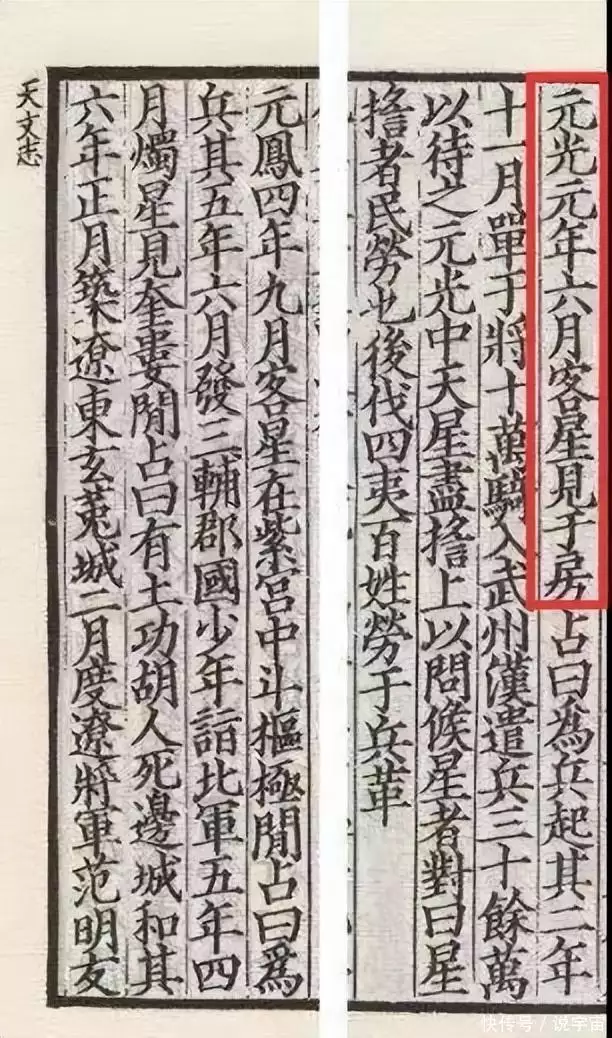 元光元年六月客星見于房占曰為兵起其二年
十一月單于將十萬騎入武州漢遣兵三十餘萬
以待之元光中天星盡搖上以問候星者對曰星
搖者民勞也後伐四夷百姓勞于兵革
元鳳四年九月客星在紫宮中斗樞極閒占曰為
兵其五年六月發三輔郡國少年詣北軍五年四
月燭星見奎婁閒占曰有土功胡人死邊城和其
六年正月築遼東玄菟城二月度遼將軍范明友
天文志
快传号/说宇宙